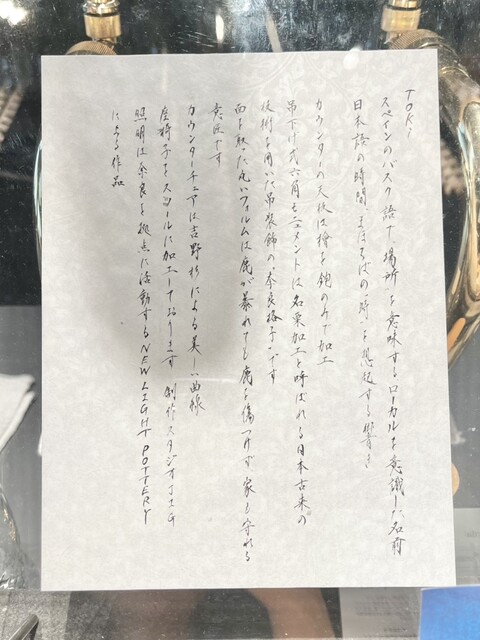 TOKi
スペインのバスク語で場所を意味するローカルを意識した名前
日本語の時間 まほろばの"時"を想起する響き
カウンターの天板は檜を鉋のみで加工
吊下げ式六角モニュメントは名栗加工と呼ばれる日本古来の
技術を用いた吊装飾の"奈良格子"です
面を取った丸いフォルムは鹿が暴れても鹿を傷つけず家も守れる
意匠です
カウンターチェアは吉野杉による美しい曲線
座椅子をスツールに加工しております 創作スタジオJIG
照明は奈良を拠点に活動するNEW LIGHT POTTERY
による作品